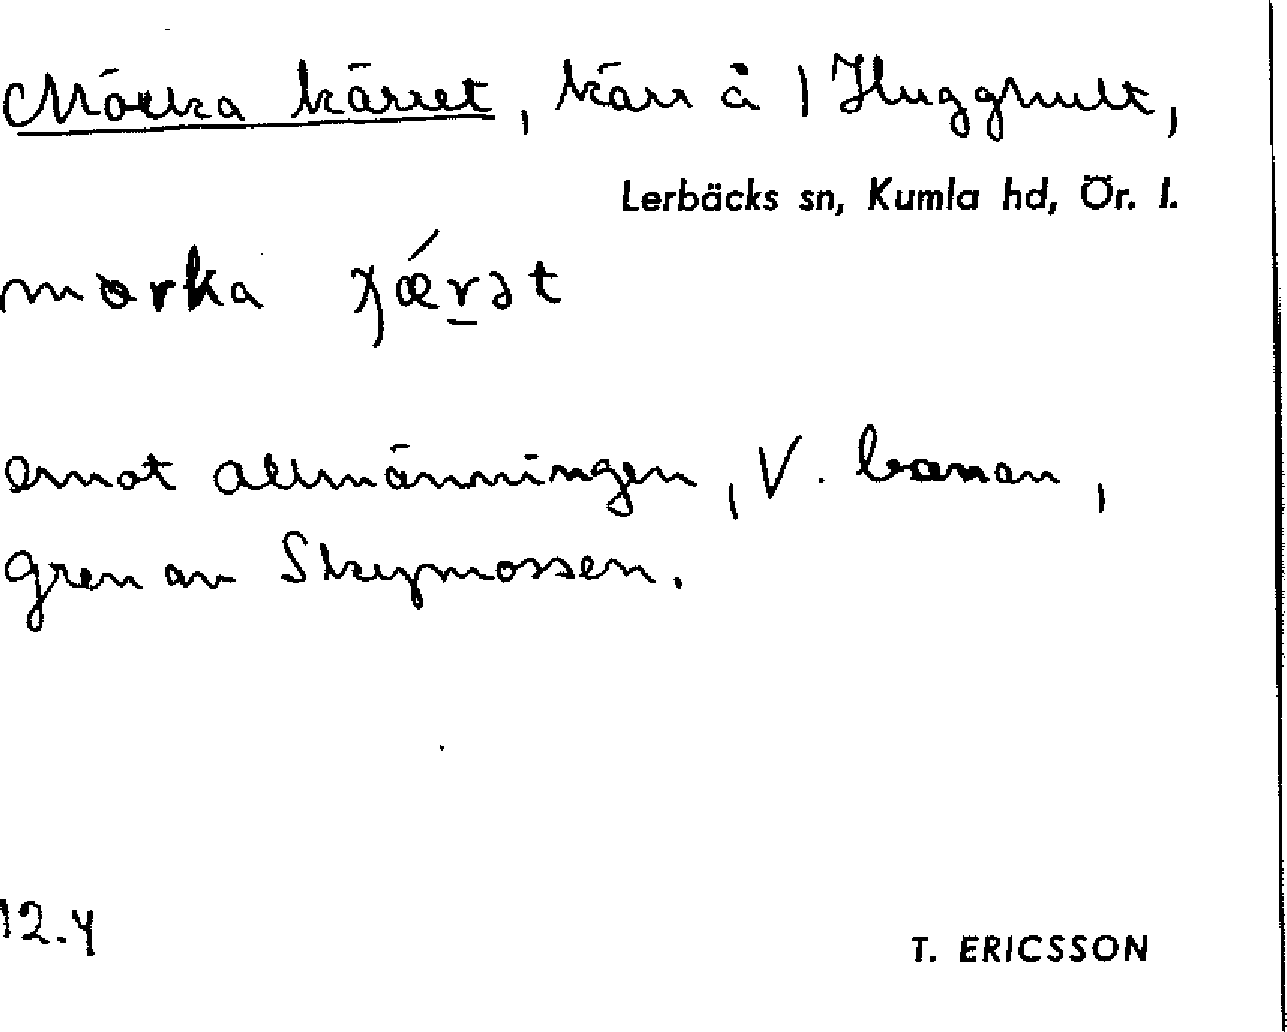 Mörka kärret, kärr å 1 Hugghult,
Lerbäcks sn, Kumla hd, Ör. l.
mɵrka χǽr̲ət
emot allmänningen, V. banan,
gren av Skeymossen.
12.4
T. ERICSSON